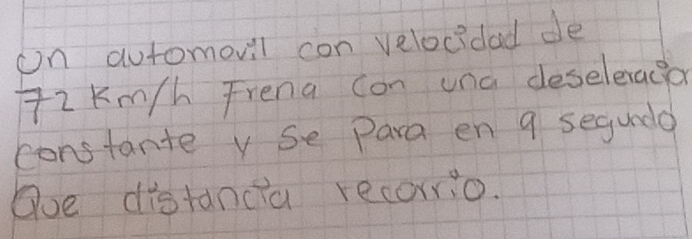 Un automovil con velocidad de
72 Km/h Frena con una deseleración
constante y se Para en 9 segundo
Que distancia recorrio.